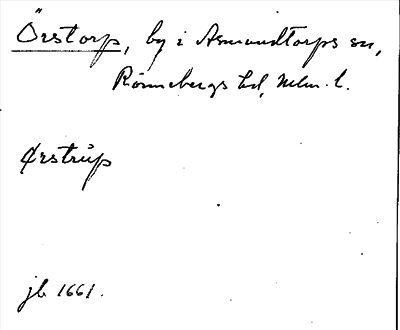 Örstorp, by i Asmundtorps sn,
Rönnebergs hd, Mlm. l.
Ørstrup
jb 1661.